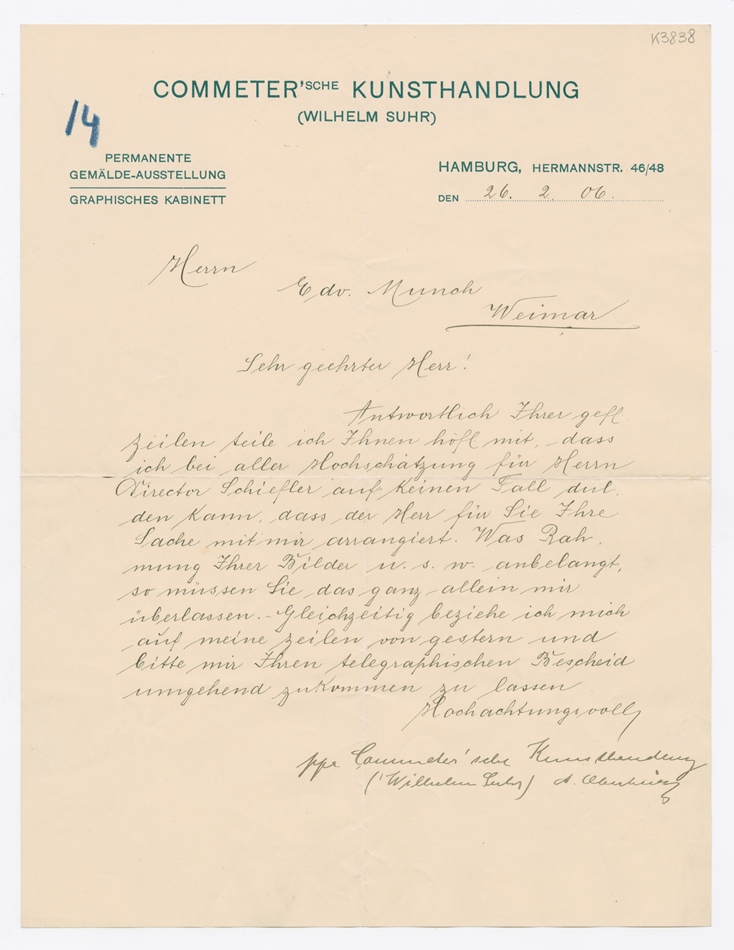 K3838
COMMETER'SCHE KUNSTHANDLUNG
(WILHELM SUHR)
14
PERMANENTE
GEMÄLDE-AUSSTELLUNG
GRAPHISCHES KABINETT
HAMBURG, HERMANNSTR. 46/48
DEN 26. 2. 06.
Herrn
Edv. Munch
Weimar
Sehr geehrter Herr!
Antwortlich Ihrer gefl
Zeilen teile ich Ihnen höfl mit, dass
ich bei aller Hochschätzung für Herrn
Director Schiefler auf keinen Fall dul.
den kann, dass der Herr für Sie Ihre
Sache mit mir arrangiert. Was Rah.
mung Ihrer Bilder u. s. w. anbelangt,
so müssen Sie das ganz allein mir
überlassen. - Gleichzeitig beziehe ich mich
auf meine Zeilen von gestern und
bitte mir Ihren telegraphischen Bescheid
umgehend zukommen zu lassen
Hochachtungsvoll
ppa Commeter'sche Kunsthandlung
(Wilhelm Suhr)